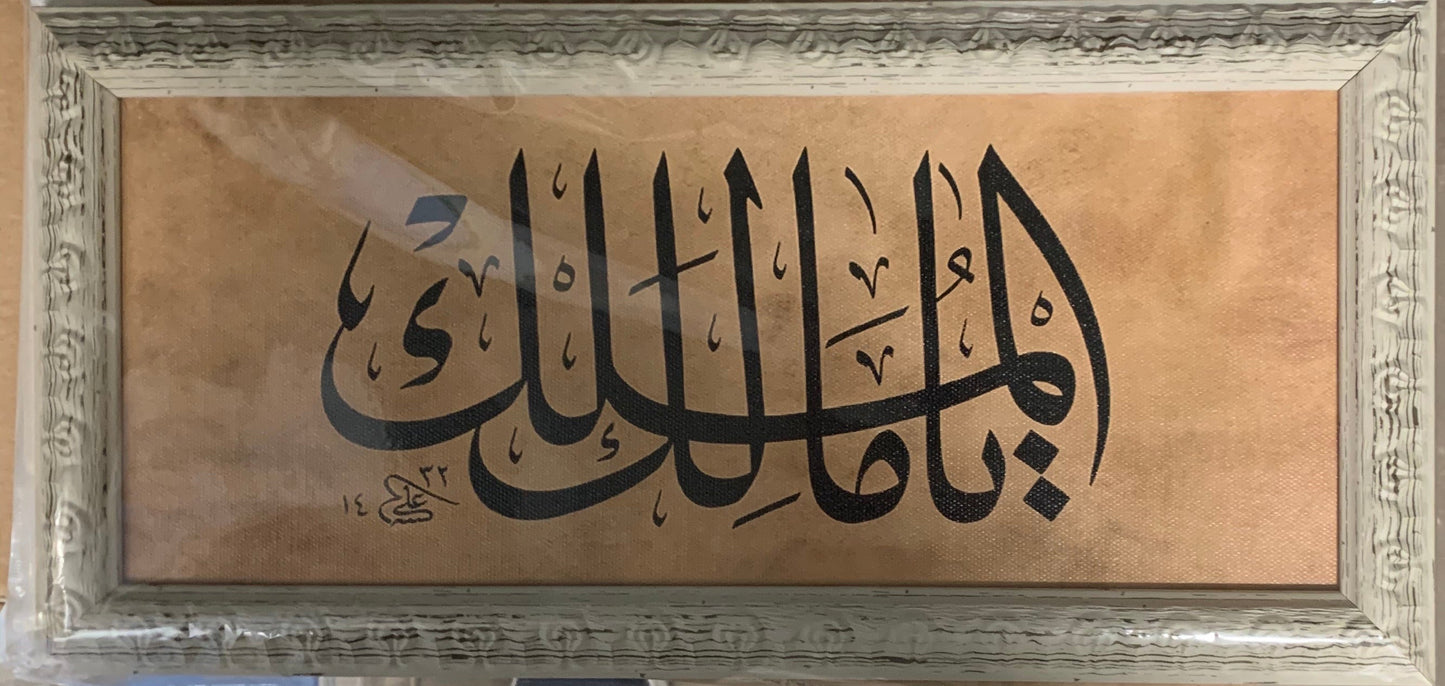 يَا مَالِكَ الْمُلْكِ
علي ١٤٣٢